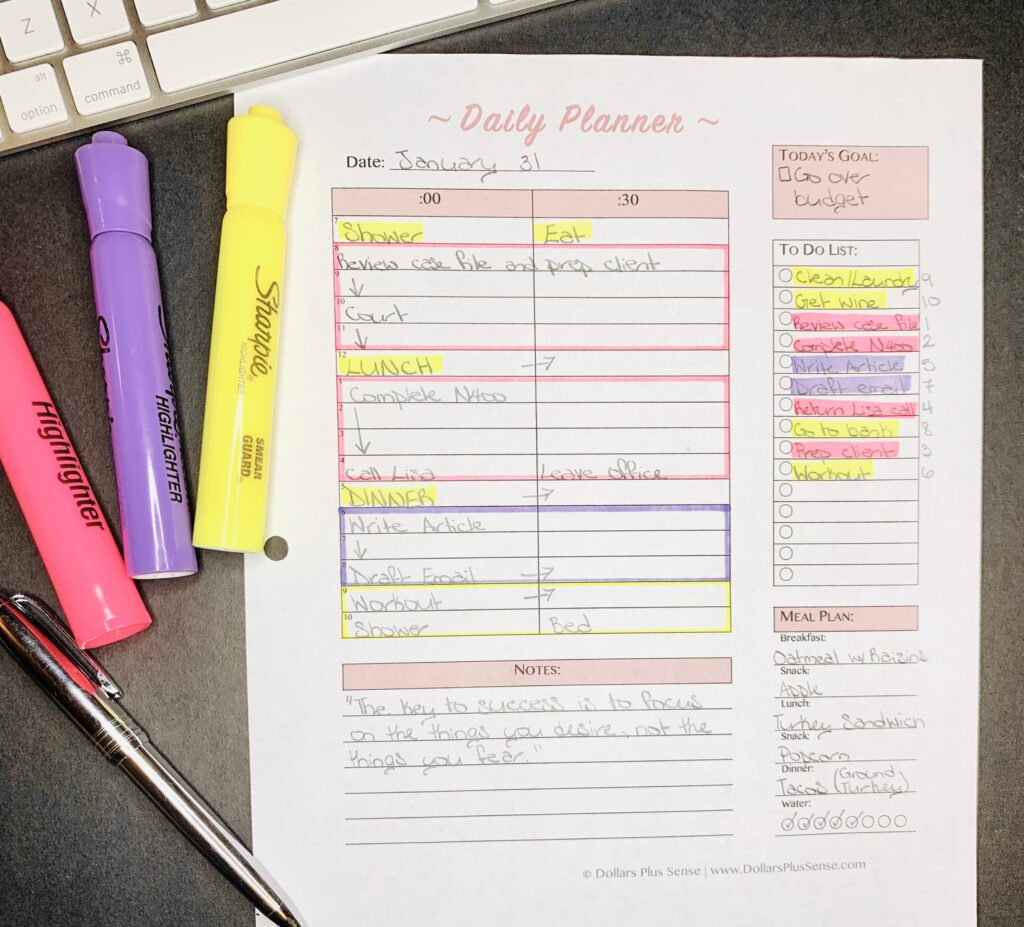 Z
X
alt
option
⌘
command
Highlighter
HIGHLIGHTER
Sharpie
HIGHLIGHTER
SMEAR
GUARD®
~ Daily Planner ~
Date: January 31
:00 :30
7 Shower Eat
8 Review case file and prep client
9 ↓
10 Court
11 ↓
12 LUNCH →
1 Complete N400
2
3 ↓
4 Call Lisa Leave office
5 DINNER →
6 Write Article
7 ↓
8 Draft Email →
9 Workout →
10 Shower Bed
NOTES:
"The key to success is to focus
on the things you desire, not the
things you fear."
TODAY'S GOAL:
Go over
budget
TO DO LIST:
Clean/Laundry 9
Get Wine 10
Review case file 1
Complete N400 2
Write Article 5
Draft email 7
Return Lisa call 4
Go to bank 8
Prep client 3
Workout 6
MEAL PLAN:
Breakfast:
Oatmeal w/ Raisins
Snack:
Apple
Lunch:
Turkey Sandwich
Snack:
Popcorn
Dinner:
Tacos (Ground Turkey)
Water:
© Dollars Plus Sense | www.DollarsPlusSense.com